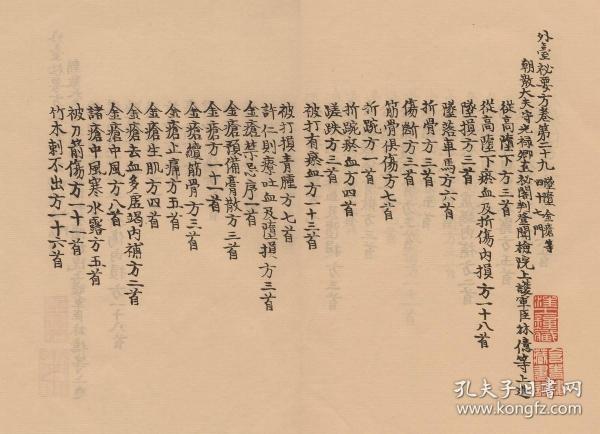 外臺祕要方卷第二十九 墜墮金瘡等四十七門
朝散大夫守光祿卿直祕閣判登聞檢院上護軍臣林億等上進
從高墮下方三首
從高墮下瘀血及折傷內損方一十八首
墜損方三首
墜落車馬方六首
折骨方三首
傷斷方三首
筋骨俱傷方七首
折跪方一首
折跪瘀血方四首
蹉跌方三首
被打有瘀血方一十三首
被打損青腫方七首
許仁則療吐血及墮損方三首
金瘡禁忌序一首
金瘡預備膏散方三首
金瘡方一十一首
金瘡續筋骨方三首
金瘡止痛方五首
金瘡生肌方四首
金瘡去血多虛竭內補方二首
金瘡中風方八首
諸瘡中風寒水露方五首
被刀箭傷方一十一首
竹木刺不出方一十六首
孔夫子旧书网
www.kongfz.com